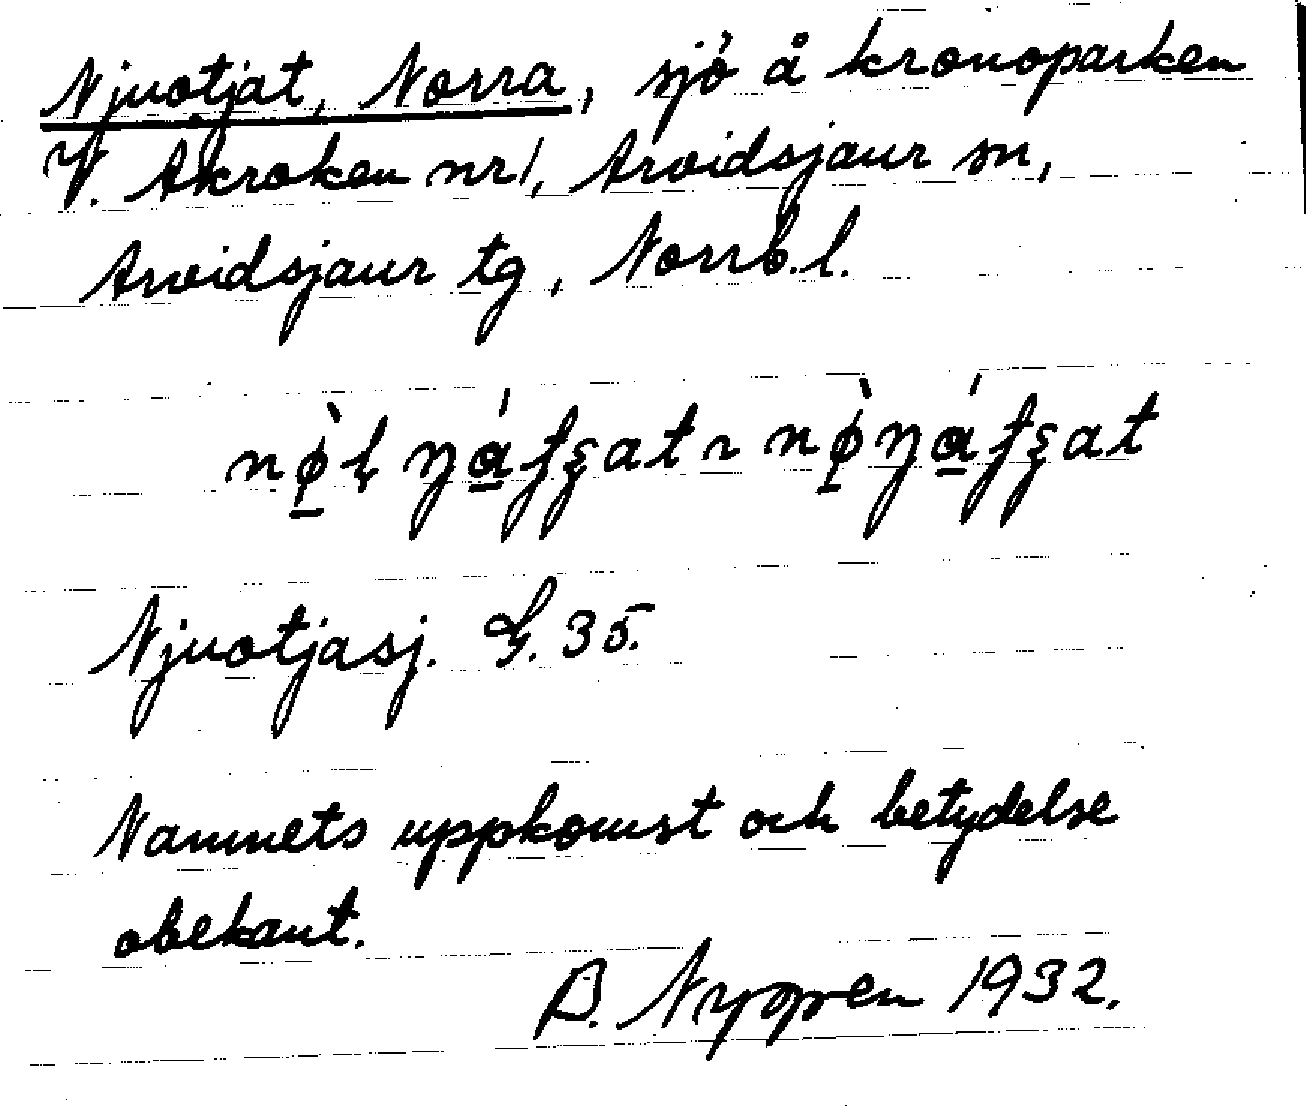 Njuotjat, Norra, sjö å kronoparken
V. Akroken nr 1, Arvidsjaur sn,
Arvidsjaur tg, Norrb. l.
Njuotjasj. G. 35.
Namnets uppkomst och betydelse
obekant.
B. Nygren 1932.